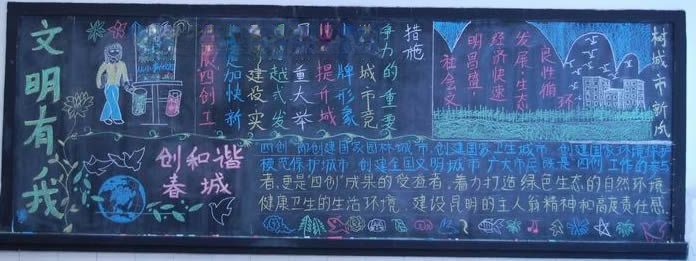 文明有我
展四创工
是加快新
建设实
越式发
重大举
提升城
牌形象
城市竞
争力的重要
措施
树城市新风
良性循环
发展·生态
经济快速
明昌盛
社会文
创和谐
春城
"四创"即创建国家园林城市,创建国家卫生城市,创建国家环境保护
模范保护城市,创建全国文明城市,广大市民既是"四创"工作的参与
者,更是"四创"成果的受益者,着力打造绿色生态的自然环境
健康卫生的生活环境,建设昆明的主人翁精神和高度责任感.